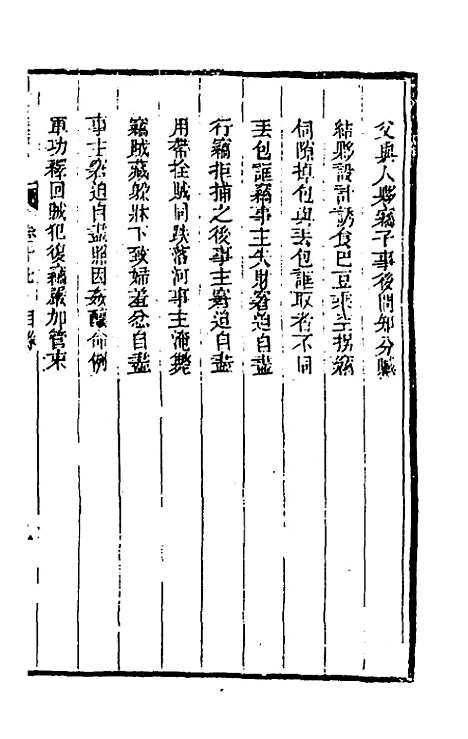 父與人夥竊子事後問知分贓
結夥設計誘食巴豆乘空拐竊
伺隙掉包與丟包誆取者不同
丟包誆竊事主失財窘迫自盡
行竊拒捕之後事主窘迫自盡
用帶拴賊同跌落河事主淹斃
竊賊藏躲牀下致婦羞忿自盡
事主窘迫自盡照因姦釀命例
軍功釋回賊犯復竊嚴加管束
目錄